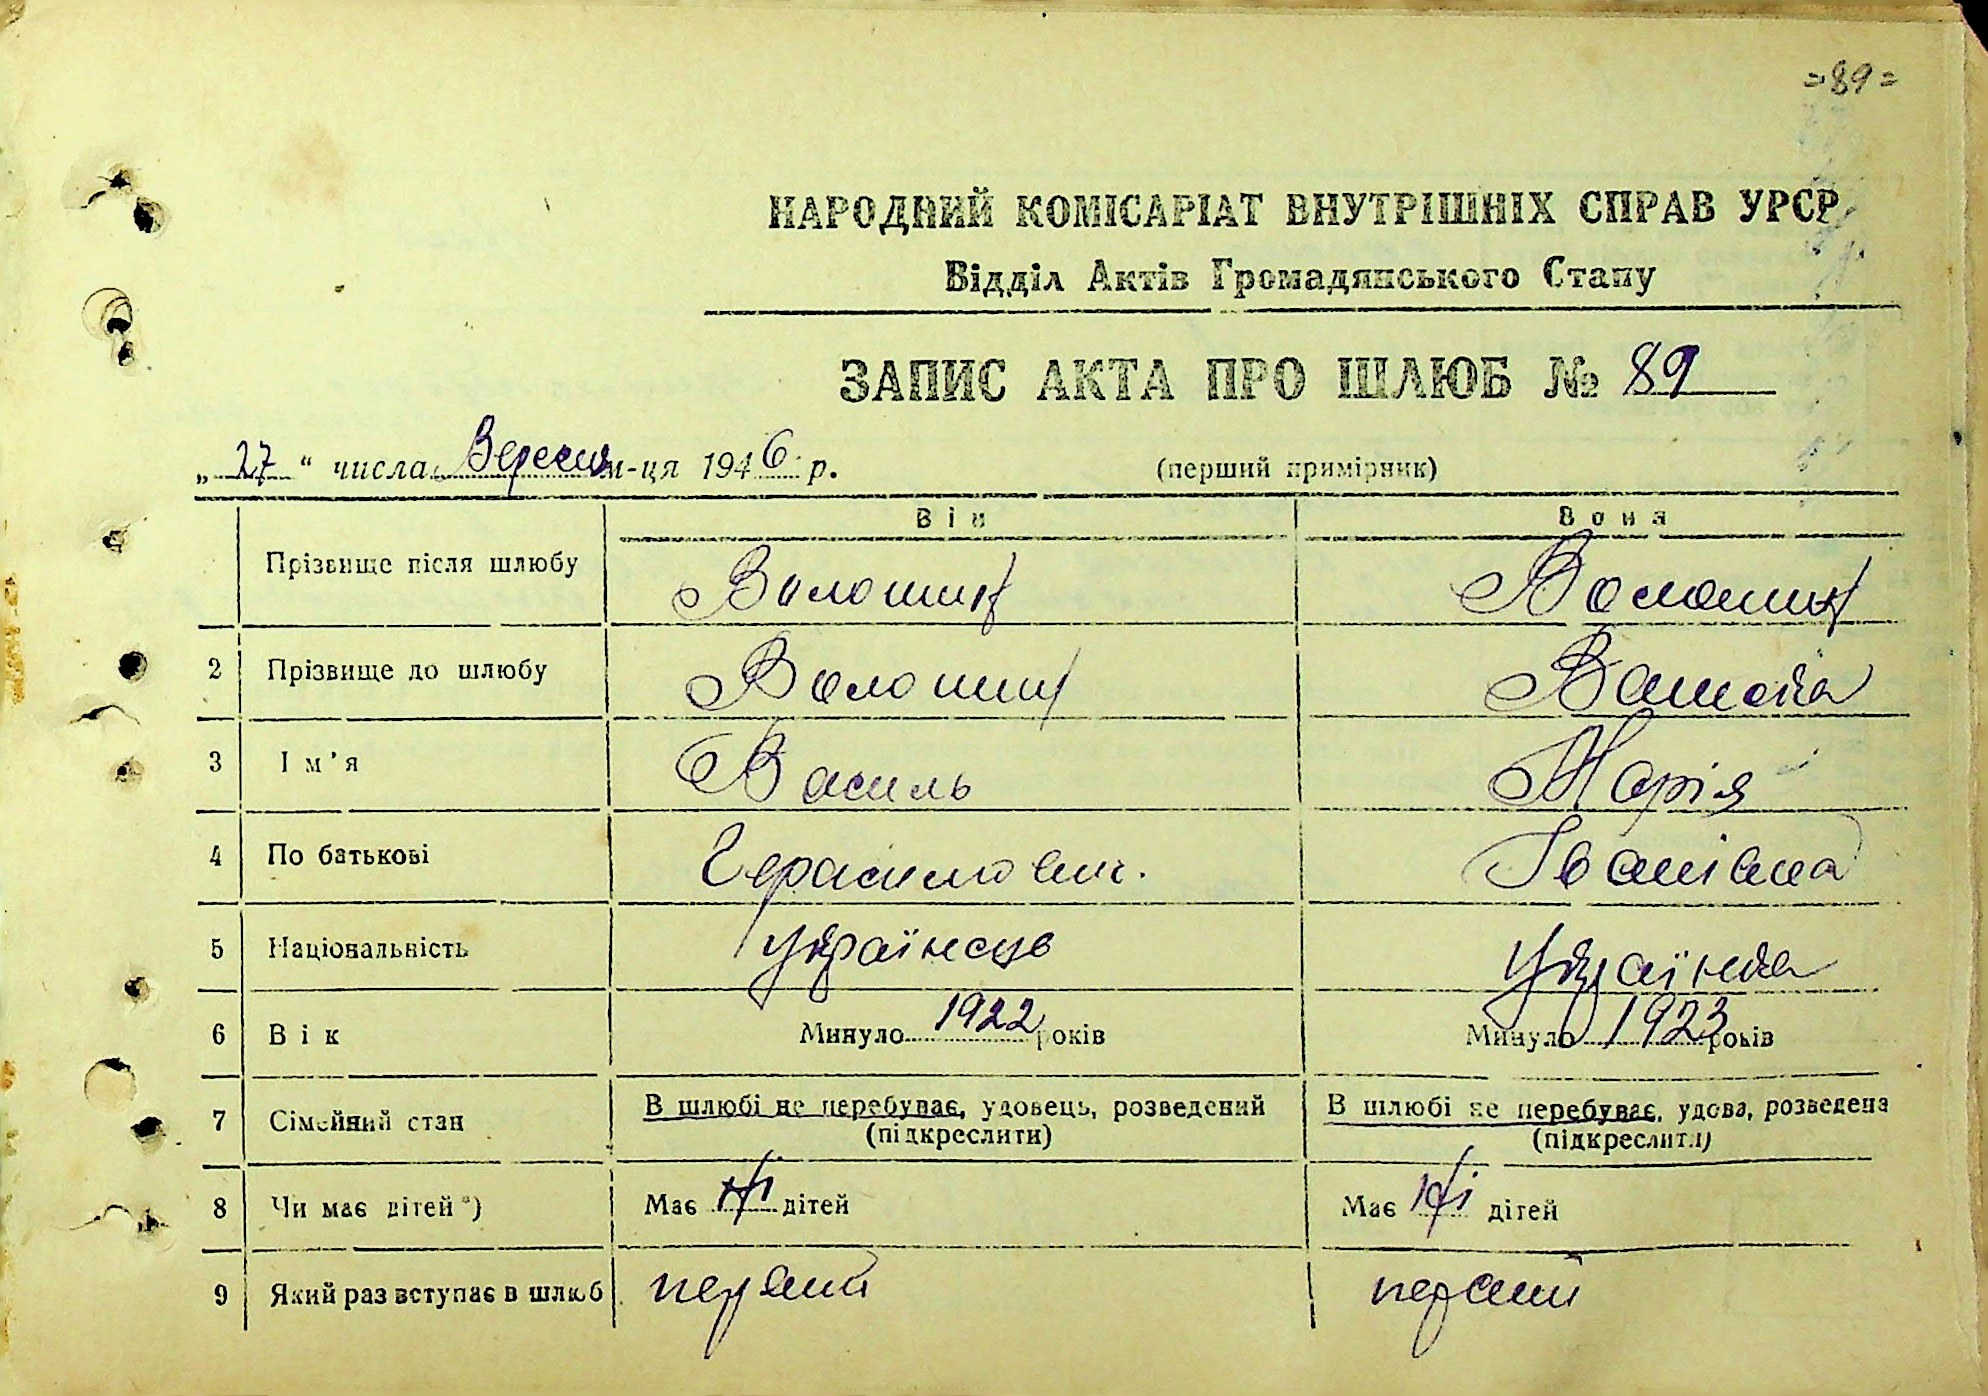 =89=
НАРОДНИЙ КОМІСАРІАТ ВНУТРІШНІХ СПРАВ УРСР
Відділ Актів Громадянського Стану
ЗАПИС АКТА ПРО ШЛЮБ № 89
„ 27 " числа Вересня м-ця 1946 р. (перший примірник)
Він Вона
Прізвище після шлюбу Волошин Волошин
2 Прізвище до шлюбу Волошин
3 Ім'я Василь Марія
4 По батькові Герасимович. Іванівна
5 Національність українець Українка
6 Вік Минуло 1922 років Минуло 1923 років
7 Сімейний стан В шлюбі не перебуває, удовець, розведений В шлюбі не перебуває, удова, розведена
(підкреслити) (підкреслити)
8 Чи має дітей *) Має ні дітей Має ні дітей
9 Який раз вступає в шлюб первий первий